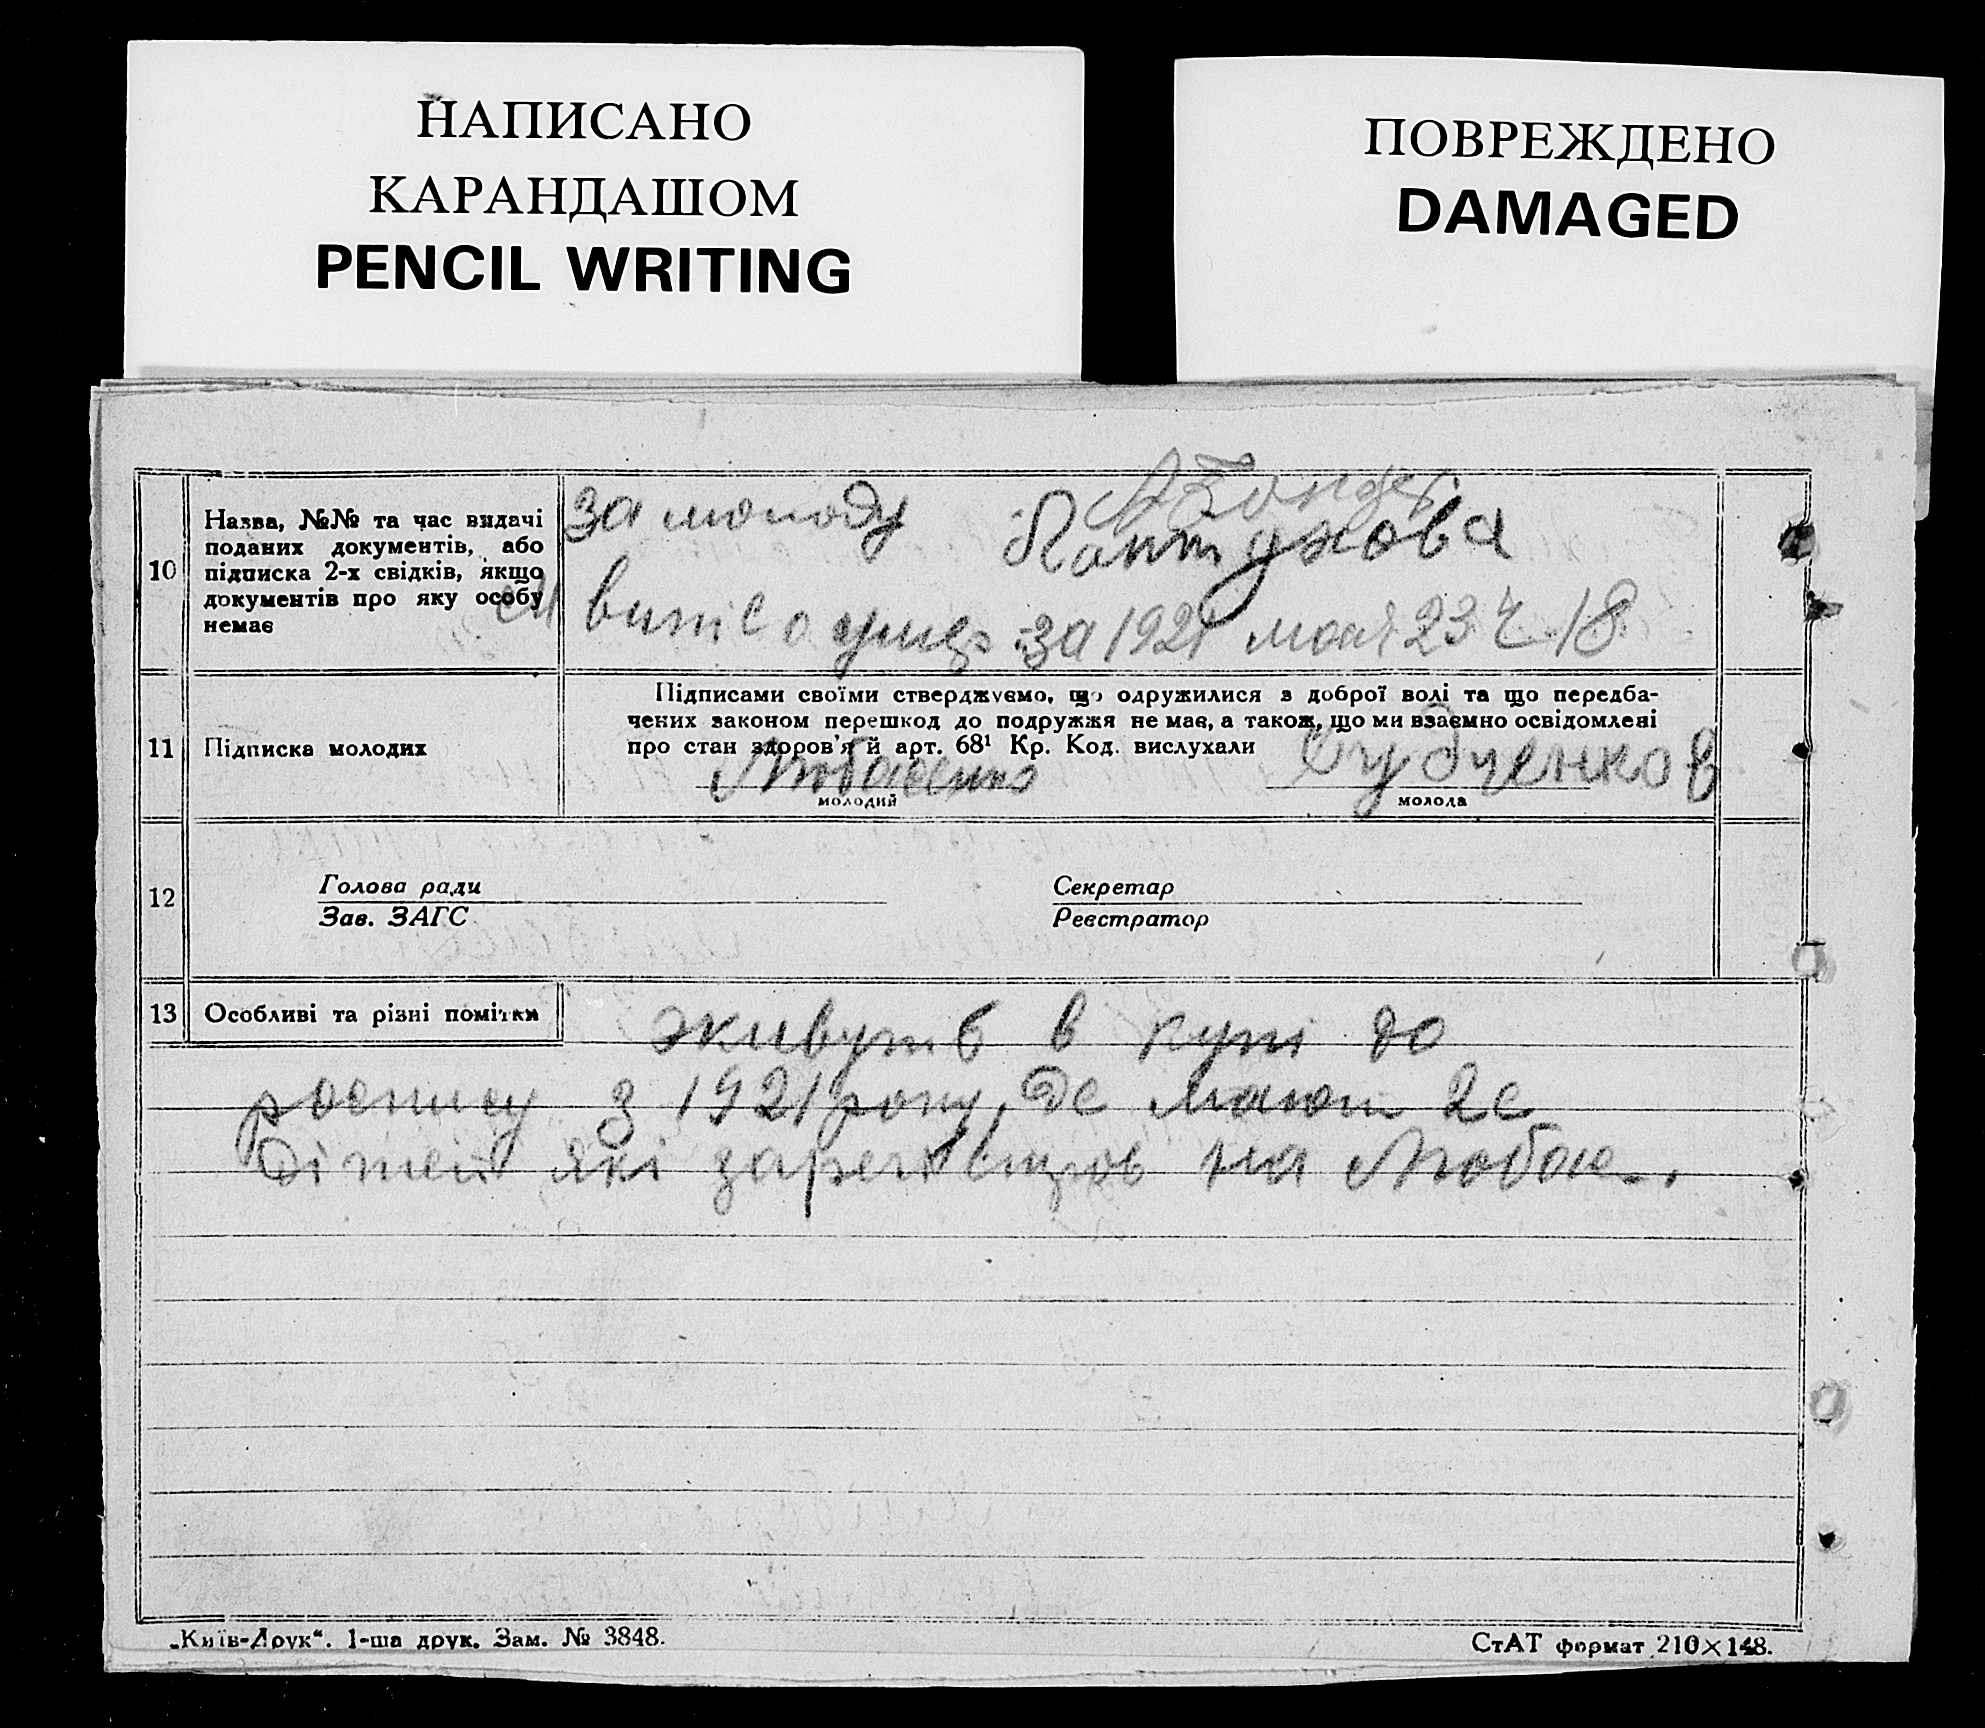 НАПИСАНО
КАРАНДАШОМ
PENCIL WRITING
ПОВРЕЖДЕНО
DAMAGED
10
Назва, №№ та час видачі
поданих документів, або
підписка 2-х свідків, якщо
документів про яку особу
немає
за молоду
за 1921 23 18
11
Підписка молодих
Підписами своїми стверджуємо, що одружилися з доброї волі та що передба-
чених законом перешкод до подружжя не має, а також, що ми взаємно освідомлені
про стан здоров'я й арт. 68¹ Кр. Код. вислухали
молодий
молода
12
Голова ради
Зав. ЗАГС
Секретар
Реєстратор
13
Особливі та різні помітки
живуть в купі до
роспису з 1921 року, де мають 2е
дітей які на Любас..
„Київ-Друк“. 1-ша друк. Зам. № 3848.
СтАТ формат 210×148.